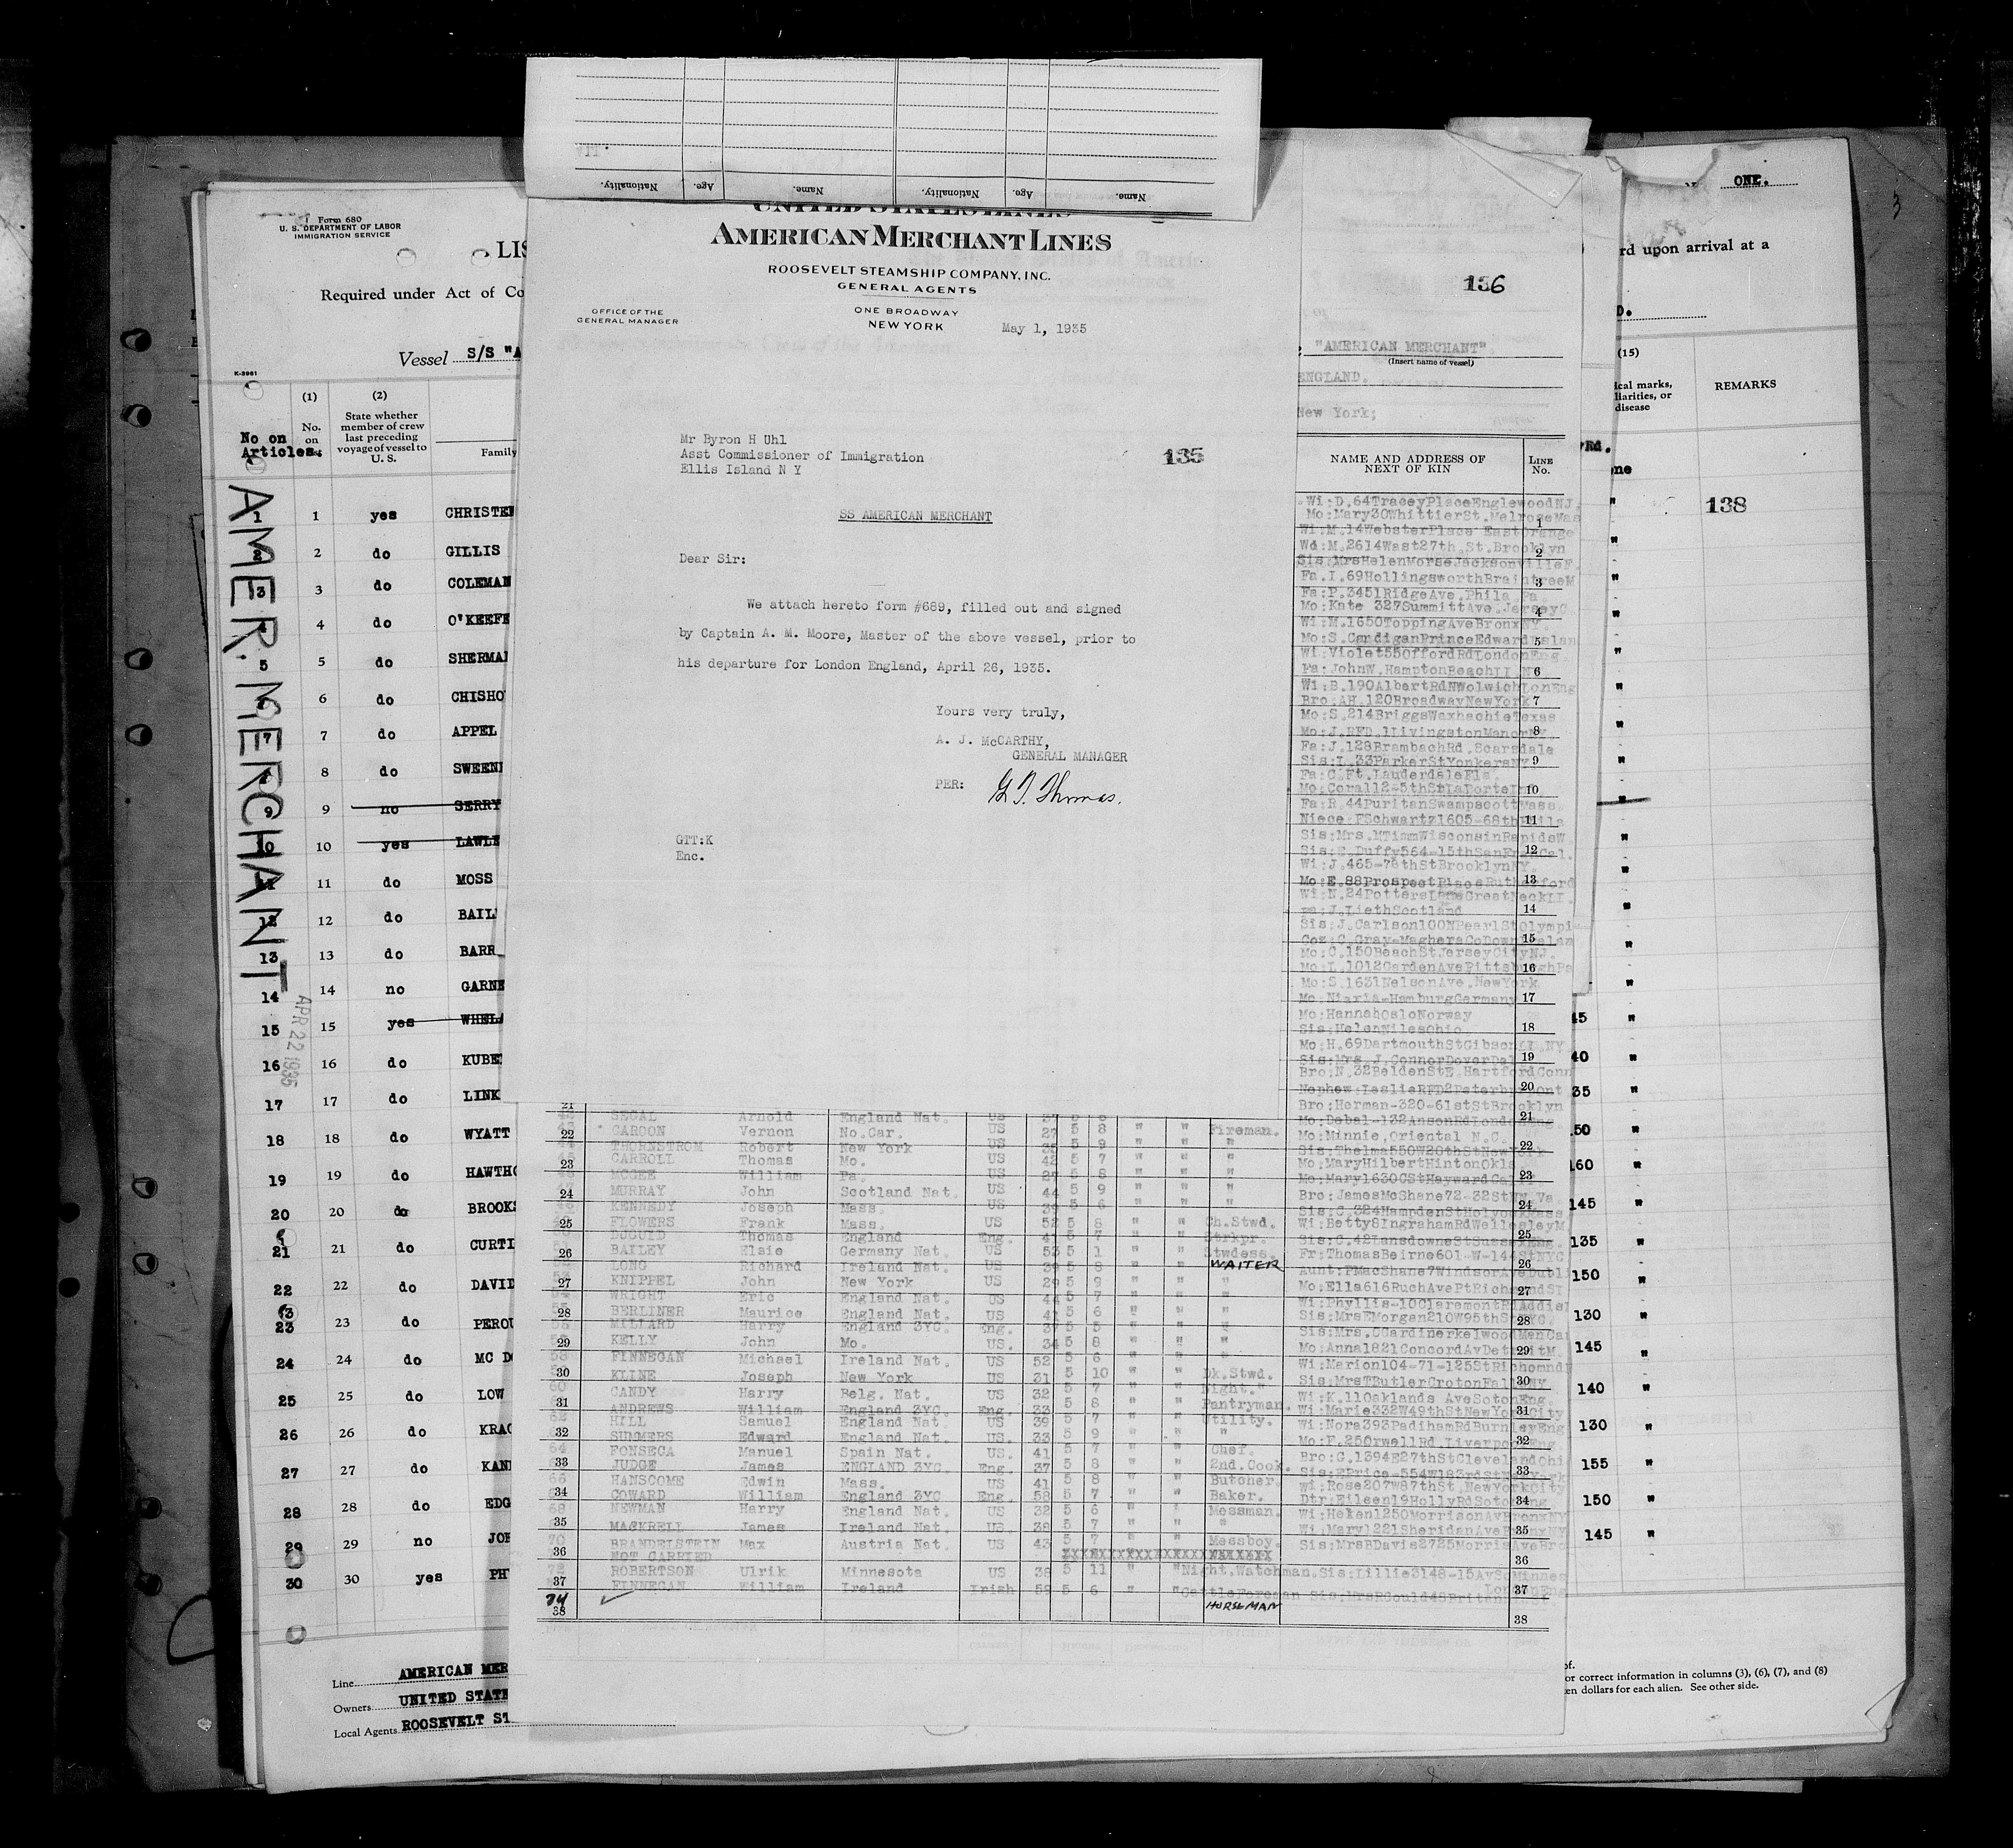 Nationality. Age. Name. Nationality. Age. Name.
UNITED STATES LINES
AMERICAN MERCHANT LINES
ROOSEVELT STEAMSHIP COMPANY, INC.
GENERAL AGENTS
OFFICE OF THE
GENERAL MANAGER
ONE BROADWAY
NEW YORK
May 1, 1935
Mr Byron H Uhl
Asst Commissioner of Immigration
Ellis Island N Y
135
SS AMERICAN MERCHANT
Dear Sir:
We attach hereto form #689, filled out and signed
by Captain A. M. Moore, Master of the above vessel, prior to
his departure for London England, April 26, 1935.
Yours very truly,
A. J. McCARTHY,
GENERAL MANAGER
PER: G. T. Thomas.
GTT:K
Enc.
Form 680
U. S. DEPARTMENT OF LABOR
IMMIGRATION SERVICE
LIS
Required under Act of Co
Vessel S/S "A
K-3961
(1) (2)
No on Articles.
No. on
State whether member of crew last preceding voyage of vessel to U. S.
Family
AMER. MERCHANT
APR 22 1935
1 1 yes CHRISTEN
2 2 do GILLIS
3 3 do COLEMAN
4 do O'KEEFE
5 5 do SHERMAN
6 do CHISHO
7 7 do APPEL
8 do SWEEN
9 9 no SERRY
10 10 yes LAWLE
11 11 do MOSS
12 12 do BAIL
13 13 do BARR
14 14 no GARNE
15 15 yes WHELA
16 16 do KUBE
17 17 do LINK
18 18 do WYATT
19 19 do HAWTHO
20 20 do BROOKS
21 21 do CURTI
22 22 do DAVID
23 23 do PEROU
24 24 do MC D
25 25 do LOW
26 26 do KRAC
27 27 do KAN
28 28 do EDG
29 29 no JOH
30 30 yes PH
Line AMERICAN MER
Owners UNITED STATE
Local Agents ROOSEVELT ST
136
"AMERICAN MERCHANT".
(Insert name of vessel)
ENGLAND.
New York;
NAME AND ADDRESS OF
NEXT OF KIN
LINE
No.
Wi:D.64TraceyPlaceEnglewoodNJ.
Mo:Mary30WhittierSt.MelroseMas
1
Wi:M.14Webster Place EastOrange
Wd:M.2614Wast27th.St.Brooklyn
2
Sis:MrsHelenMorseJacksonvilleF.
Fa.I.69HollingsworthBraintreeM
3
Fa:P.3451RidgeAve.Phila Pa.
Mo:Kate 327SummittAve.JerseyC
4
Wi:M.1650ToppingAveBronxNY.
Mo:S.CardiganPrinceEdwardIslan
5
Wi:Violet55OffordRdLondonEng.
Fa:JohnW.HamptonBeachLI.N
6
Wi:B.190AlbertRdNWolwichLonEng
Bro:AH.120BroadwayNewYork
7
Mo:S.214BriggsWaxhachieTexas
8
Mo:J.RFD.1LivingstonManorNY.
Fa:J.128BrambachRd.Scarsdale
Sis:L.33ParkerStYonkersNY
9
Fa:C.Ft.LauderdaleFla.
Mo:Coral12-5thStLaPorteI
10
Fa:R.44PuritanSwampscottMass.
Niece:FSchwartz1605-68thPhila
11
Sis:Mrs.MTimmWisconsinRapidsW.
Sis:E.Duffy564-15thSanFranCal.
12
Wi:J.465-76thStBrooklynNY.
Mo:E.88ProspectPlaceRutherford
13
Wi:N.24PottersLaneGreatNeckLI.
Fa:J.LiethScotland
14
Sis:J.Carlson100NPearlStOlympi
Coz:C.Gray-MagheraCoDownIrelan
15
Mo:C.150BeachStJerseyCityNJ.
Mo:L.1012GardenAvePittsburghPa
16
Mo:S.1631NelsonAve.NewYork
Mo:Niaria-HamburgGermany
17
Mo:HannahOsloNorway
Sis:HelenNilesOhio.
18
Mo:H.69DartmouthStGibsonLI.NY.
Sis:Mrs.J.ConnorDoverDel
19
Bro:N.32BeldenStE.HartfordConn
Nephew:LeslieRFD2PeterboroOnt
20
Bro:Herman-320-61stStBrooklyn
21 SEGAL Arnold England Nat. US Mo:Debal-132AnsonRdLondonEng. 21
22 CAROON Vernon No.Car. US 27 5 8 " " Fireman. Mo:Minnie,Oriental N.C. 22
THORNSTROM Robert New York US 35 5 9 " " " Sis:Thelma550W20thStNewYork
23 CARROLL Thomas Mo. US 42 5 7 " " " Mo:MaryHilbertHintonOkla 23
MCGEE William Pa. US 27 5 8 " " " Mo:Mary1630CStHaywardCal
24 MURRAY John Scotland Nat. US 44 5 9 " " " Bro:JamesMcShane72-32StNN.Va. 24
KENNEDY Joseph Mass. US 39 5 6 Sis:C.324HampdenStHolyokeMass.
25 FLOWERS Frank Mass. US 52 5 8 " " Ch.Stwd. Wi:Betty8IngrahamRdWellesleyM. 25
DUGUID Thomas England Eng. 41 5 7 " " Strkpr. Sis:C.42LansdowneStSussexEng.
26 BAILEY Elsie Germany Nat. US 53 5 1 " " Stwdess. Fr:ThomasBeirne601-W-144StNYC 26
LONG Richard Ireland Nat. US 39 5 8 " " WAITER Aunt:PMacShane7WindsorAveDubli
27 KNIPPEL John New York US 29 5 9 " " " Mo:Ella616RuchAvePtRichmondSI 27
WRIGHT Eric England Nat. US 44 5 7 " " " Wi:Phyllis-10ClaremontRdAddis
28 BERLINER Maurice England Nat. US 41 5 6 " " " Sis:MrsEMorgan210W95thStNYC. 28
MILLARD Harry England 3YC. Eng. 37 5 5 " " " Sis:Mrs.CGardinerkelwoodManCan
29 KELLY John Mo. US. 34 5 8 " " " Mo:Anna1821ConcordAvDetroitM. 29
FINNEGAN Michael Ireland Nat. US 52 5 6 " " " Wi:Marion104-71-125StRichomnd
30 KLINE Joseph New York US 31 5 10 " " Dk.Stwd. Sis:MrsTButlerCrotonFallsNY 30
CANDY Harry Belg. Nat. US 32 5 7 " " Night." Wi:K.11Oaklands AveSotonEng.
31 ANDREWS William England 3YC. Eng. 33 5 8 " " Pantryman. Wi:Marie332W49thStNewYorkCity 31
HILL Samuel England Nat. US 39 5 7 " " Utility. Wi:Nora393PadihamRdBurnleyEng
32 SUMMERS Edward England Nat. US. 33 5 9 " " " Mo:F.25OrwellRd.LiverpoolEng 32
64 FONSECA Manuel Spain Nat. US. 41 5 7 " " Chef. Bro:G.1394E27thStClevelandOhi
33 JUDGE James ENGLAND 3YC. Eng. 37 5 8 " " 2nd.Cook. Sis:EPrice-554W183rdStNewYork 33
66 HANSCOME Edwin Mass. US 41 5 8 " " Butcher. Wi:Rose207W87thSt.NewYorkCity
34 COWARD William England 3YC Eng. 58 5 7 " " Baker. Dtr:Eileen19HollyRdSotonEng 34
NEWMAN Harry England Nat. US 32 5 6 " " Messman. Wi:Helen1250MorrisonAvBronxNY
35 MACKRELL James Ireland Nat. US. 38 5 7 " " " Wi:Mary1221SheridanAveBronxNY 35
70 BRANDELSTEIN Max Austria Nat. US 43 5 7 " " Messboy. Sis:MrsBDavis2725MorrisAveBro
36 NOT CARRIED XXXXXXXXXXXXXXXXXXXXXXX 36
ROBERTSON Ulrik Minnesota US 38 5 11 " " Night.Watchman. Sis:Lillie3148-15AvSMinnes
37 FINNEGAN William Ireland Irish 59 5 6 " " CattleForeman Sis:MrsRGould48Pritan LondonEng 37
74 HORSEMAN
38 38
ONE.
3
rd upon arrival at a
D.
(15)
ical marks,
liarities, or
disease
REMARKS
Rd.
one
138
45 "
40 "
35 "
150 "
160 "
145 "
135 "
150 "
130 "
145 "
140 "
130 "
155 "
150 "
145 "
of.
or correct information in columns (3), (6), (7), and (8)
en dollars for each alien. See other side.